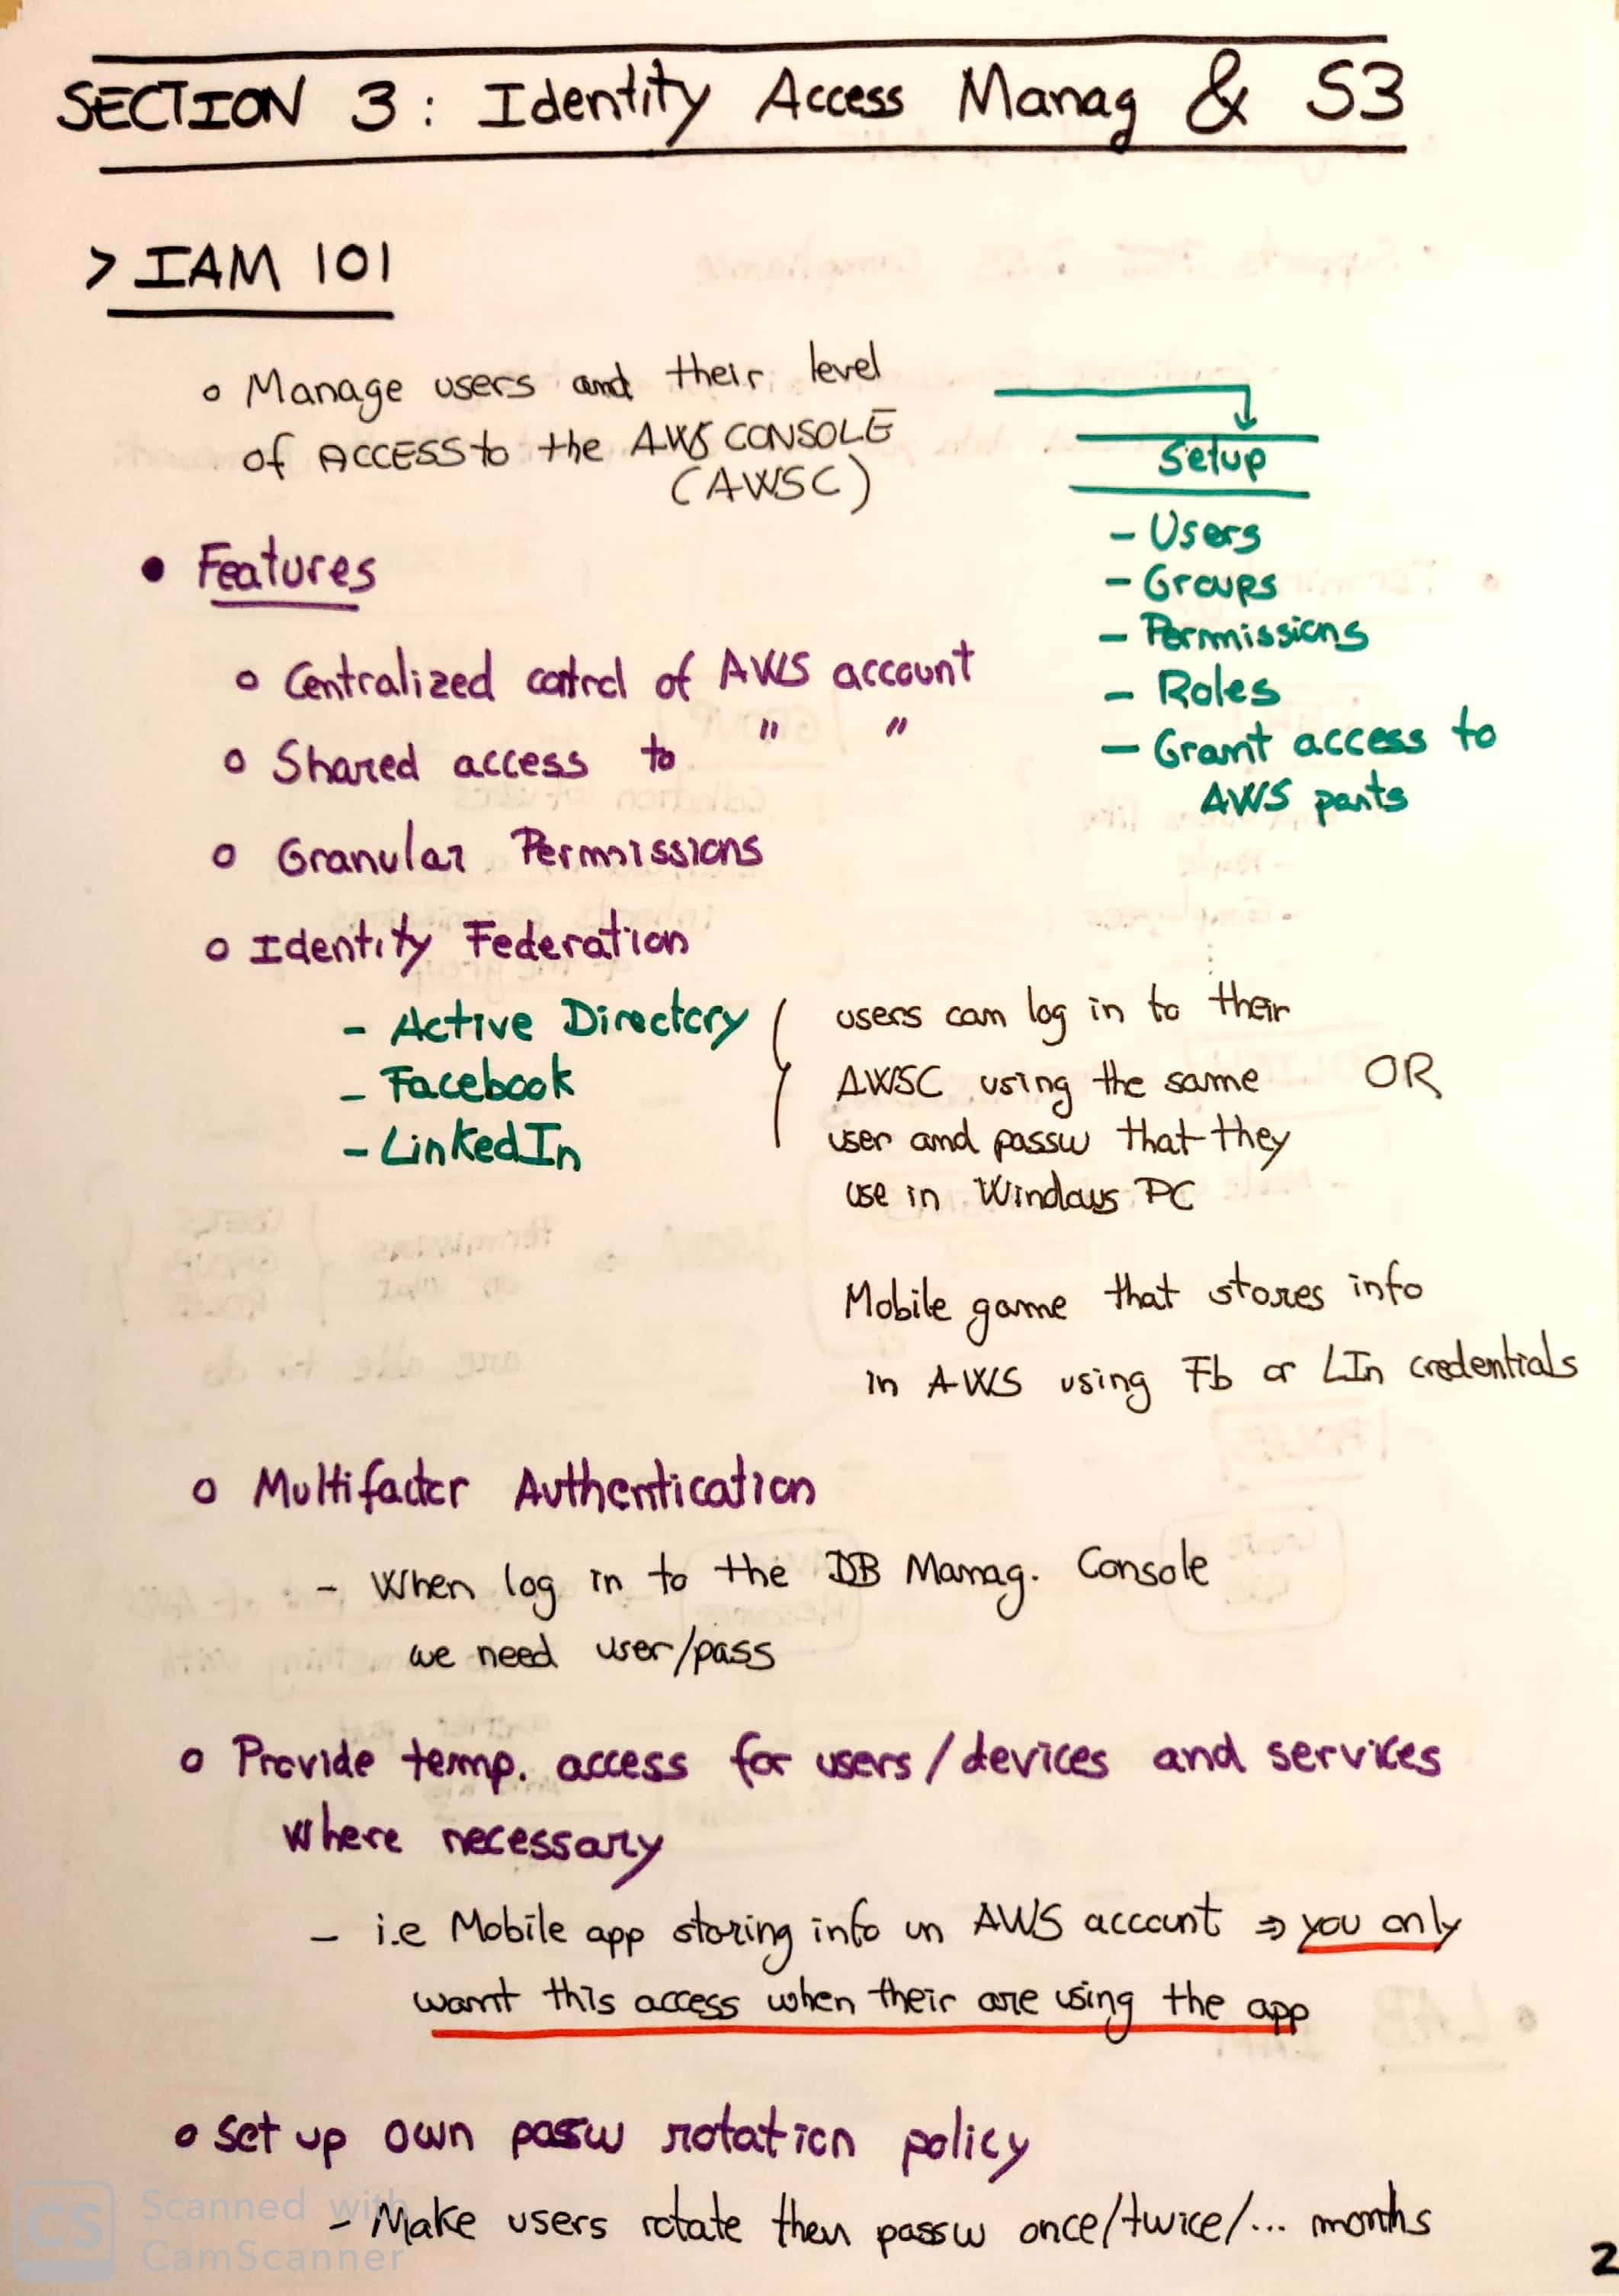 SECTION 3: Identity Access Manag & S3
> IAM 101
o Manage users and their level
of ACCESS to the AWS CONSOLE
(AWSC)
Setup
- Users
- Groups
- Permissions
- Roles
- Grant access to
AWS parts
• Features
o Centralized control of AWS account
o Shared access to " "
o Granular Permissions
o Identity Federation
- Active Directory
- Facebook
- LinkedIn
users can log in to their
AWSC using the same OR
user and passw that they
use in Windows PC
Mobile game that stores info
in AWS using Fb or LIn credentials
o Multifactor Authentication
- When log in to the DB Manag. Console
we need user/pass
o Provide temp. access for users/devices and services
where necessary
- i.e Mobile app storing info un AWS account ⇒ you only
want this access when their are using the app
o Set up own passw rotation policy
- Make users rotate their passw once/twice/... months
CS Scanned with
CamScanner
2